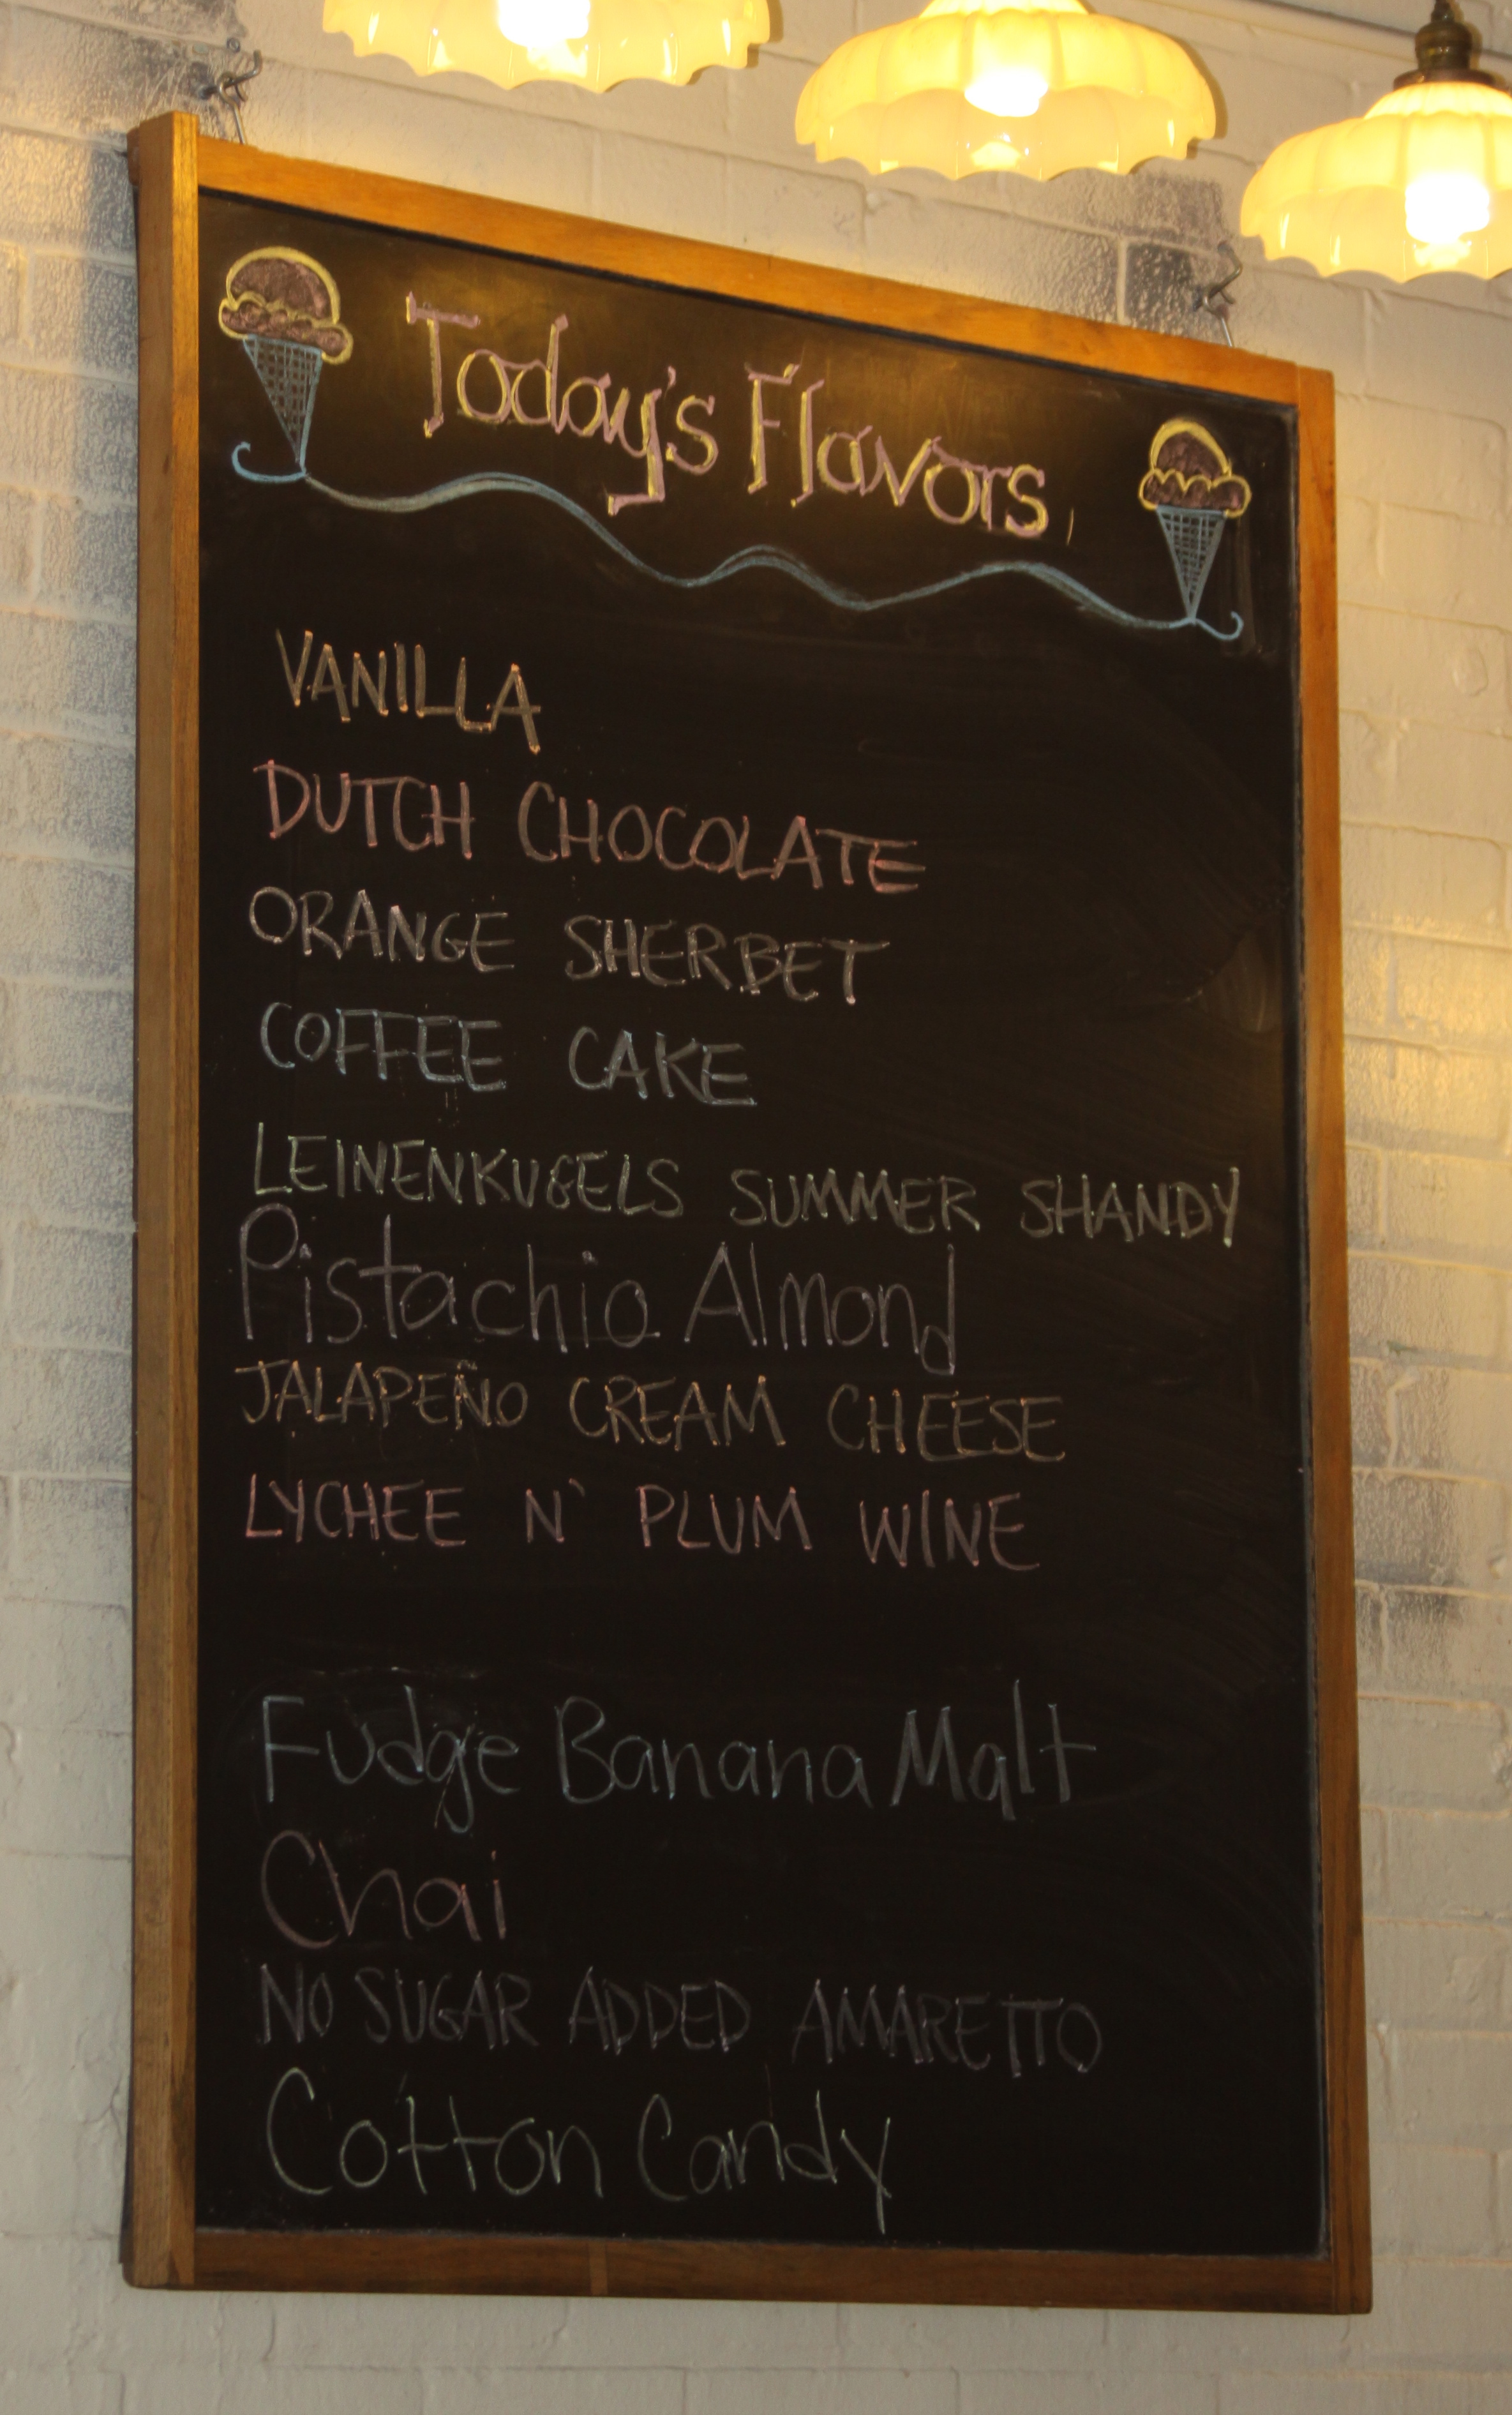 Today's Flavors
VANILLA
DUTCH CHOCOLATE
ORANGE SHERBET
COFFEE CAKE
LEINENKUGELS SUMMER SHANDY
Pistachio Almond
JALAPEÑO CREAM CHEESE
LYCHEE N' PLUM WINE
Fudge Banana Malt
Chai
NO SUGAR ADDED AMARETTO
Cotton Candy